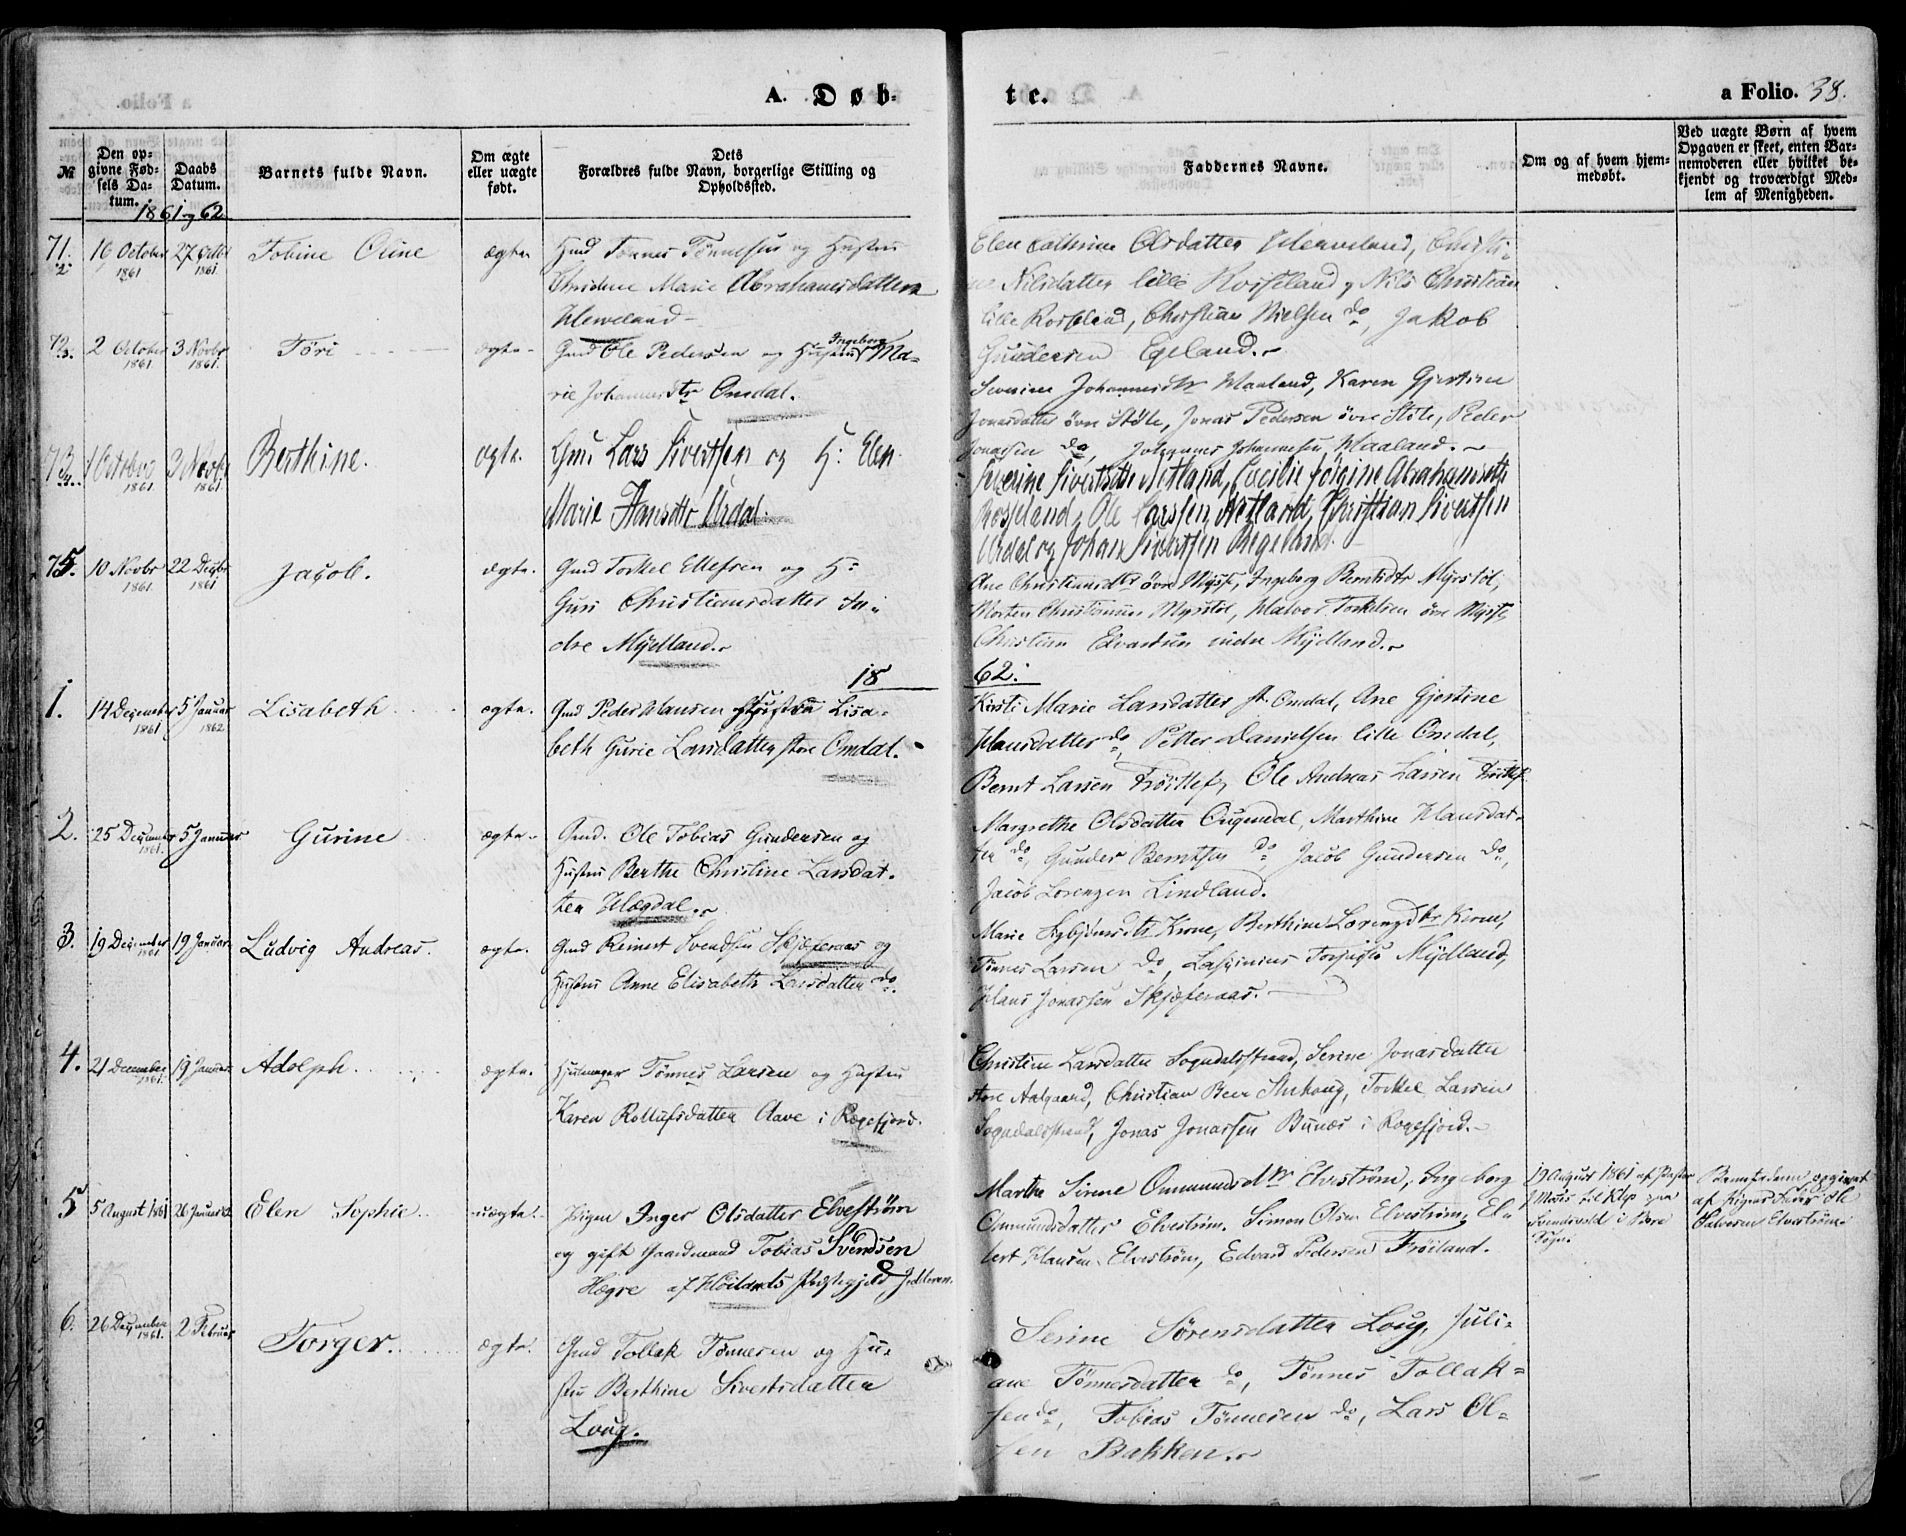 A. Døb-
te.
a Folio. 38.
№
Den op-
givne Fød-
sels Da-
tum.
Daabs
Datum.
Barnets fulde Navn.
Om ægte
eller uægte
født.
Dets
Forældres fulde Navn, borgerlige Stilling og
Opholdssted.
Faddernes Navne.
Om og af hvem hjem-
medøbt.
Ved uægte Børn af hvem
Opgaven er skeet, enten Bar-
nemoderen eller hvilket be-
kjendt og troværdigt Med-
lem af Menigheden.
1861 og 62
71.
16 October
1861
27 Octbr
1861.
Tobine Oline
ægte
Gmd Tønnes Tønnesen og Hustru
Christine Marie Abrahamsdatter
Hleweland
Elen Cathrine Olsdatter Hleweland, Christi-
ne Nilsdatter lille Rosseland, Nils Christian
lille Rosseland, Christian Nielsen do, Jakob
Gundersen Egeland.
2 October
1861.
3 Novbr
1861.
Töri
ægte
Gmd Ole Pedersen og Hustru Ingeborg Ma-
rie Johannesdtr Omdal.
Severine Johannesdtr Maaland, Karen Gjertine
Jonasdatter övre Støle, Jonas Pedersen övre Støle, Peder
Jonassen do, Johannes Johannesen Maaland.
1 October
1861
3 Novbr
1861.
Berthine.
ægte.
Gmd Lars Sivertsen og H: Elen
Marie Hansdtr Urdal.
Severine Sivertsdtr Netland, Cecilie Jørgine Abrahamsdtr
Rosseland, Ole Larssen Netland, Christian Sivertsen
Urdal og Johan Sivertsen Regeland.
75.
10 Novbr
1861.
22 Decbr
1861.
Jacob.
ægte.
Gmd Torkel Ellefsen og H:
Guri Christiansdatter in-
dre Mydland.
Ane Christiansdtr övre Mysse, Ingeborg Berntsdtr Myrstøl,
Morten Christiansen Myrstøl, Halvor Torkelsen övre Mysse,
Christian Edvardsen indre Mydland.
18
62.
1.
14 December
1861
5 Januar
1862
Lisabeth
ægte.
Gmd Peder Hansen og Hustru Lisa-
beth Gurie Larsdatter store Omdal.
Kirsti Marie Larsdatter st. Omdal, Ane Gjertine
Hansdatter do, Petter Danielsen lille Omdal,
Bernt Larsen Frøitlef, Ole Andreas Larsen
2.
25 December
1861.
5 Januar
Gurine
ægte
Gmd. Ole Tobias Gundersen og
Hustru Berthe Christine Larsdat-
ter Hægdal.
Margrethe Olsdatter Ougendal, Marthine Hansdat-
ter do, Gunder Berntsen do, Jacob Gundersen do,
Jacob Lorenzen Lindland.
3.
19 December
1861
19 Januar
Ludvig Andreas.
ægte.
Gmd Reinert Svendsen Skjæferaas og
Hustru Anne Elisabeth Larsdatter do.
Marie Asbjörnsdtr Kirne, Berthine Lorenzdtr Kirne,
Tønnes Larsen do, Mydland,
Hans Jonassen Skjæferaas.
4.
21 December
1861.
19 Januar
Adolph
ægte.
Hjulmager Tønnes Larsen og Hustru
Karen Rollufsdatter Aave i Rægefjord.
Christine Larsdatter Sogndalsstrand, Serine Jonasdatter
store Aalgaard, Christian Beer Aarhaug, Torkel Larsen
Sogndalsstrand, Jonas Jonassen Bunes i Rægefjord.
5
5 August 1861
26 Januar 62
Elen Sophie
uægte.
Pigen Inger Olsdatter Elvestrøm
og gift Gaardmand Tobias Svendsen
Hægre af Höilands Præstegjeld, Jedderen.
Marthe Sirene Ommundsdtr Elvestrøm, Ingeborg
Ommundsdatter Elvestrøm, Simon Olsen Elvestrøm, El-
bert Hansen Elvestrøm, Edvard Pedersen Frøiland.
19 August 1861 af Pastor
til Klep paa
i Børe
Sogn.
Barnefaderen opgivet
af Pigens Fader Ole
Salvesen Elvestrøm.
6.
26 December
1861.
2 Februar
Torger.
ægte.
Gmd Tollak Tønnesen og Hu-
stru Berthine Sivertsdatter
Loug.
Serine Sørensdatter Loug, Juli-
ane Tönnesdatter do, Tønnes Tollak-
sen do, Tobias Tønnesen do, Lars Ol-
sen Bakken.